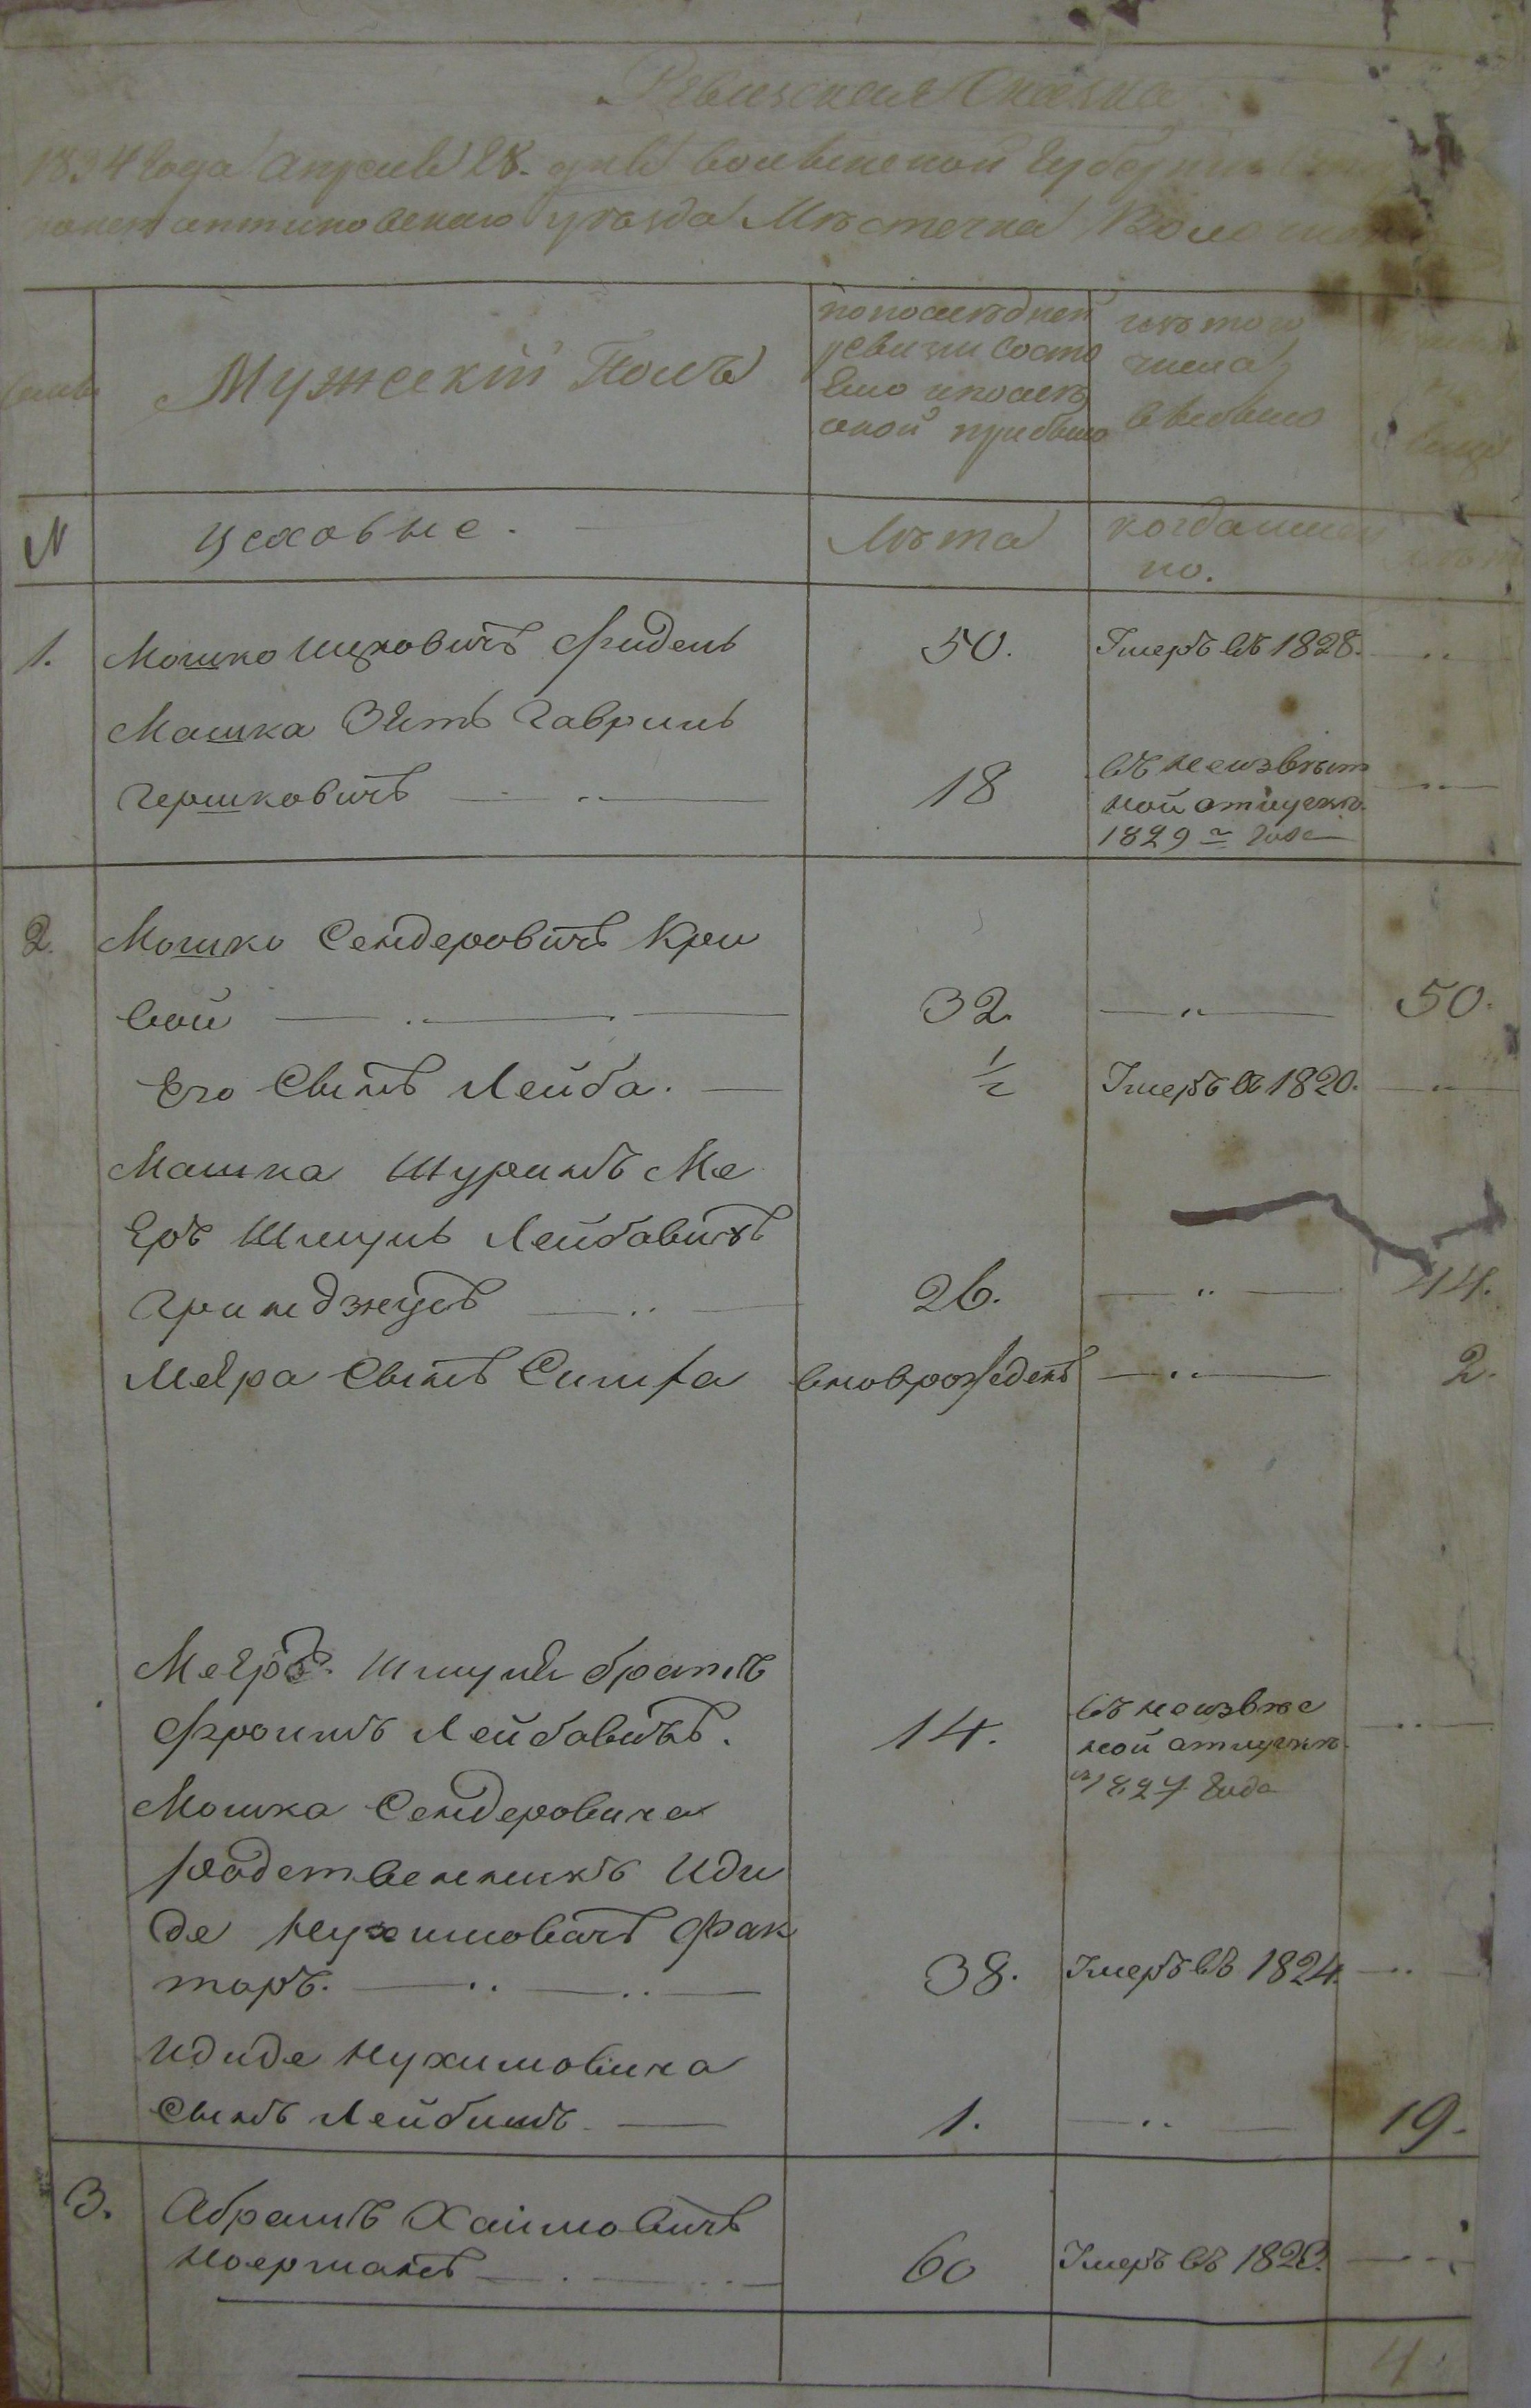 Ревизская Сказка
1834 года Апреля 28. дня Волынской Губернии
константиновскаго уѣзда Мѣстечка
Мужескій Полъ
по послѣдней
ревизіи состо
яло и послѣ
оной прибыло
изъ того
числа
выбыло
N
цеховые. —
Лѣта
когда имен
но.
1. Мошко Ицковичъ Фидель 50. Умеръ въ 1828. — „ —
Мошка Зять Гаврилъ
Гершковичъ — „ — 18 въ неизвѣст
ной отлучкѣ
1829 года — „ —
2. Мошко Сендеровичъ Кри
вой — . — . — 32. — „ — 50.
Его Сынъ Лейба. — 1/2 Умеръ въ 1820. — „ —
Мошка Шуринъ Ме
еръ Шмуль Лейбовичъ
— „ — 26. — „ — 44.
Меера Сынъ Симха вновьрожденъ — „ — 2.
Мееръ Шмуля братъ
Фроимъ Лейбовичъ. 14. въ неизвѣс
ной отлучкѣ
съ 1827 года — „ —
Мошка Сендеровича
родственникъ Иди
де Нухимовичъ Фак
торъ. — „ — „ — 38. Умеръ въ 1824. — „ —
Идиде Нухимовича
Сынъ Лейбишъ — 1. — „ — 19.
3. Абрамъ Хаимовичъ
— . — „ — 60 Умеръ въ 1823. — „ —
4.